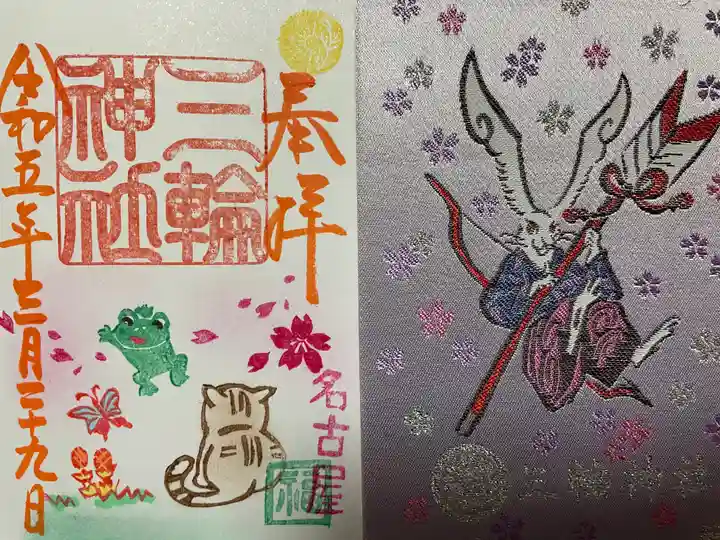 奉拝
三輪
神社
令和五年三月二十九日
名古屋
福
三輪神社